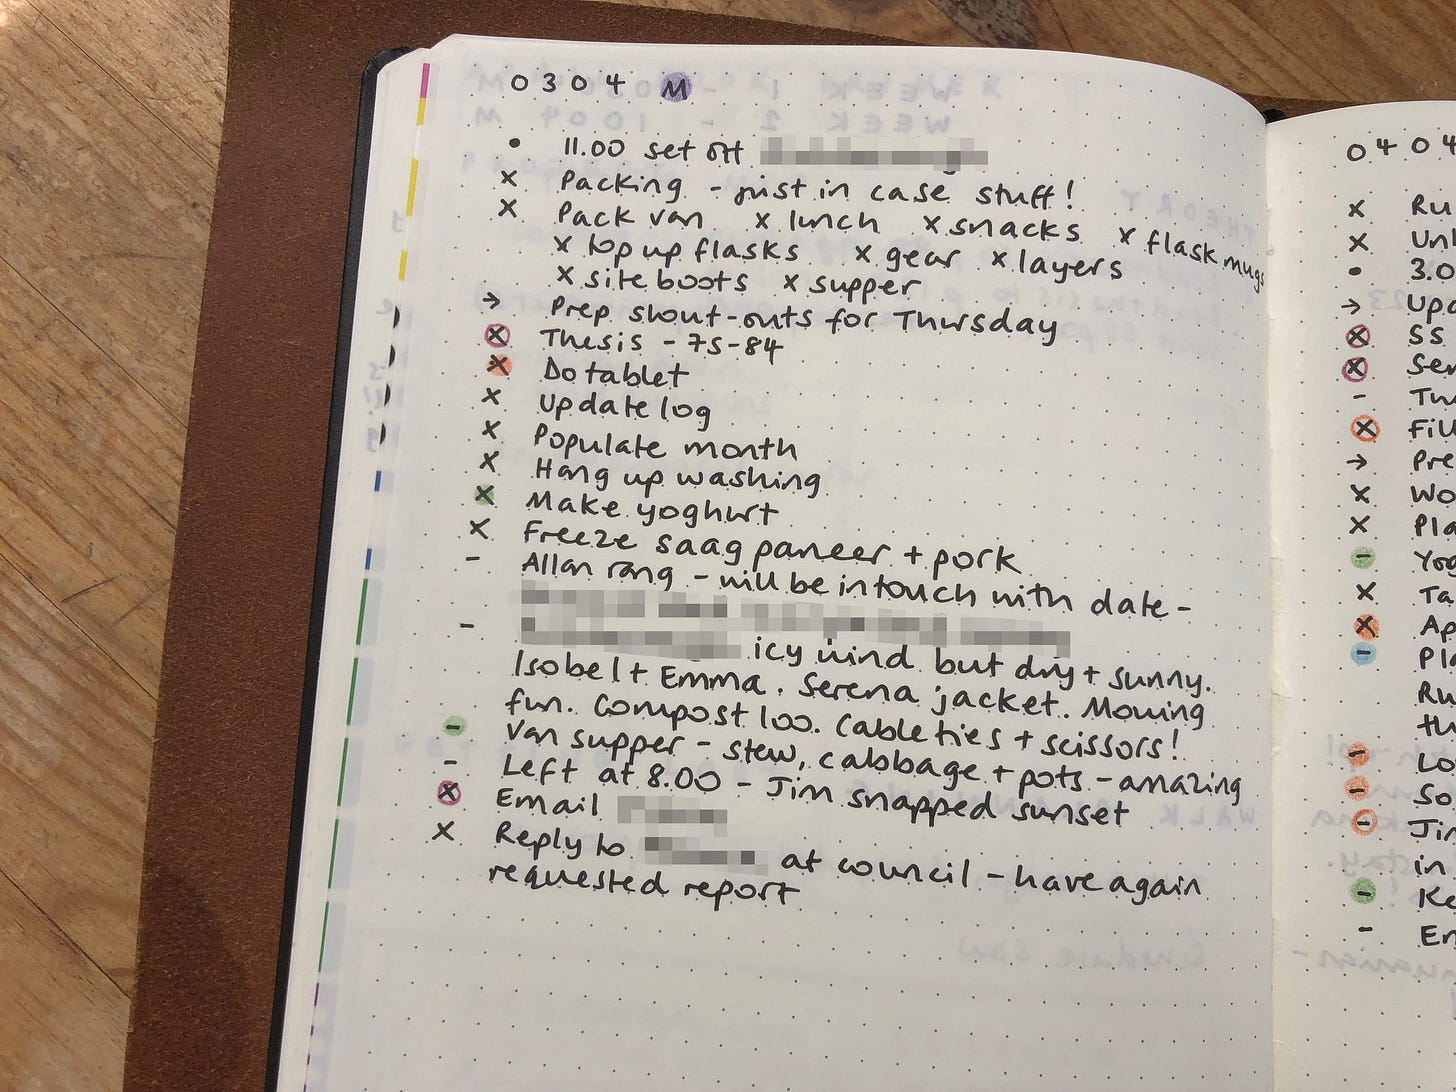 0304 M
• 11.00 set off
× Packing - just in case stuff!
× Pack van × lunch × snacks × flask mugs
× top up flasks × gear × layers
× site boots × supper
→ Prep shout-outs for Thursday
× Thesis - 75-84
× Do tablet
× Update log
× Populate month
× Hang up washing
× Make yoghurt
× Freeze saag paneer + pork
- Allan rang - will be in touch with date -
- icy wind but dry + sunny.
Isobel + Emma. Serena jacket. Mowing
fun. Compost loo. Cable ties + scissors!
- Van supper - stew, cabbage + pots - amazing
- Left at 8.00 - Jim snapped sunset
× Email
× Reply to at council - have again
requested report
0404
× Ru
× Unl
• 3.0
→ Upd
× SS
× Ser
- Tw
× Fill
→ Pre
× Wo
× Pla
- Yog
× Ta
× Ap
- Pla
Ru
th
- Lo
- So
- Jim
in
- Ke
- En